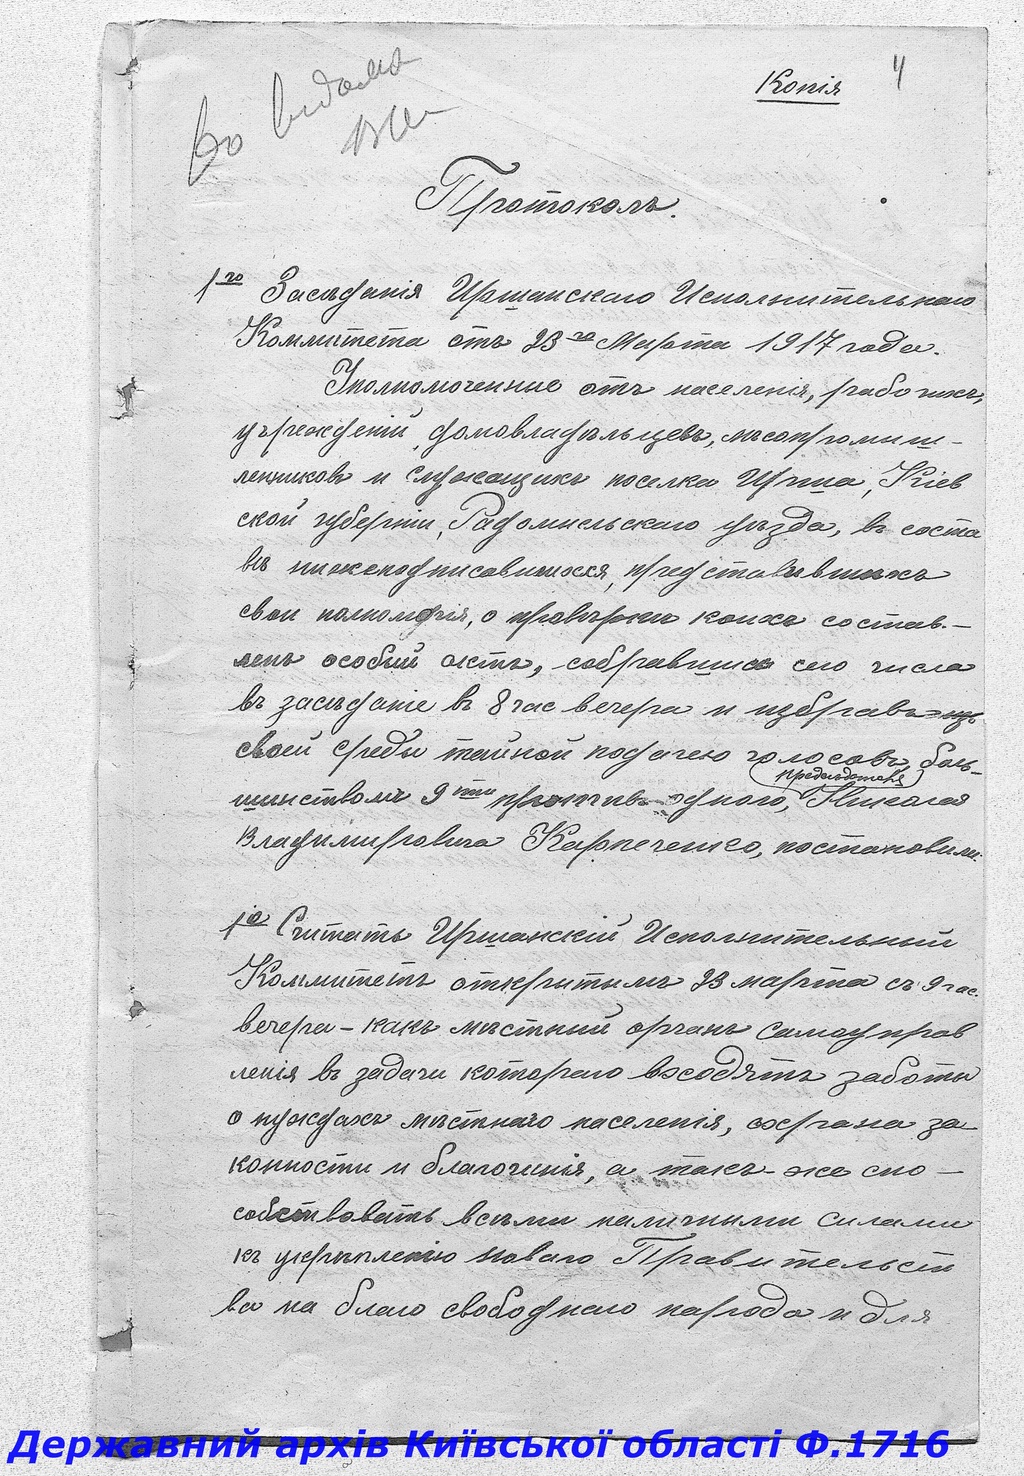 До відома
Копія 4
Протоколъ.
1го Засѣданія Иршанскаго Исполнительнаго
Коммитета отъ 23го Марта 1917 года.
Уполномоченные отъ населенія, рабочихъ,
учрежденій, домовладѣльцевъ, лѣсопромыш-
ленниковъ и служащихъ поселка Ирша, Кіев
ской губерніи, Радомысльскаго уѣзда, въ соста
вѣ нижеподписавшихся, представившихъ
свои полномочія, о провѣркѣ коихъ состав-
ленъ особый актъ, собравшись сего числа
въ засѣданіе въ 8 час вечера и избравъ изъ
своей среды тайной подачею голосовъ, боль-
предсѣдателя
шинствомъ 9ти противъ одного, Николая
Владимировича Карпеченко, постановили:
1о Считать Иршанскій Исполнительный
Коммитетъ открытымъ 23 марта съ 9 час.
вечера - какъ мѣстный органъ самоуправ
ленія въ задачи котораго входятъ заботы
о нуждахъ мѣстнаго населенія, охрана за
конности и благочинія, а такъ-же спо-
собствовать всѣми наличными силами
къ укрѣпленію новаго Правительст
ва на благо свободнаго народа и для
Державний архів Київської області Ф.1716